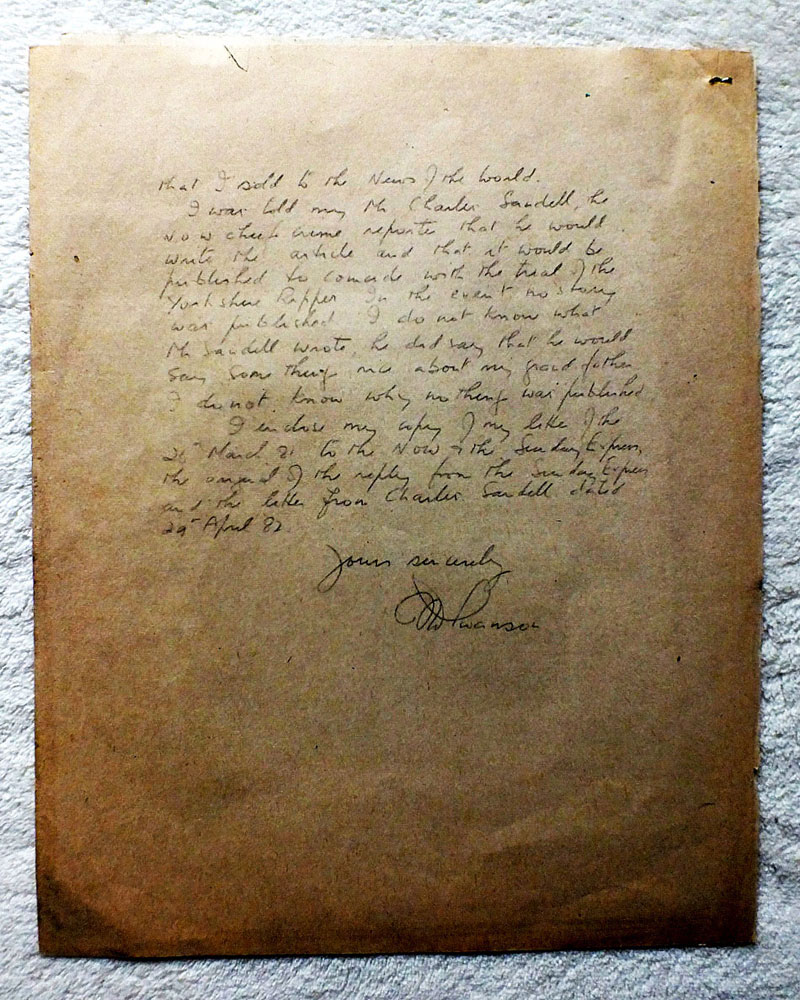 that I sold to the News of the World.
I was told my Mr Charles Sandell, the
NOW chief crime reporter that he would
write the article and that it would be
published to coincide with the trial of the
Yorkshire Ripper In the event no story
was published I do not know what
Mr Sandell wrote, he did say that he would
say something nice about my grandfather
I do not know why nothing was published
I enclose my copy of my letter of the
26th March 81 to the NOW + the Sunday Express,
the original of the reply from the Sunday Express
and the letter from Charles Sandell dated
29th April 82.
Yours sincerely
Swanson